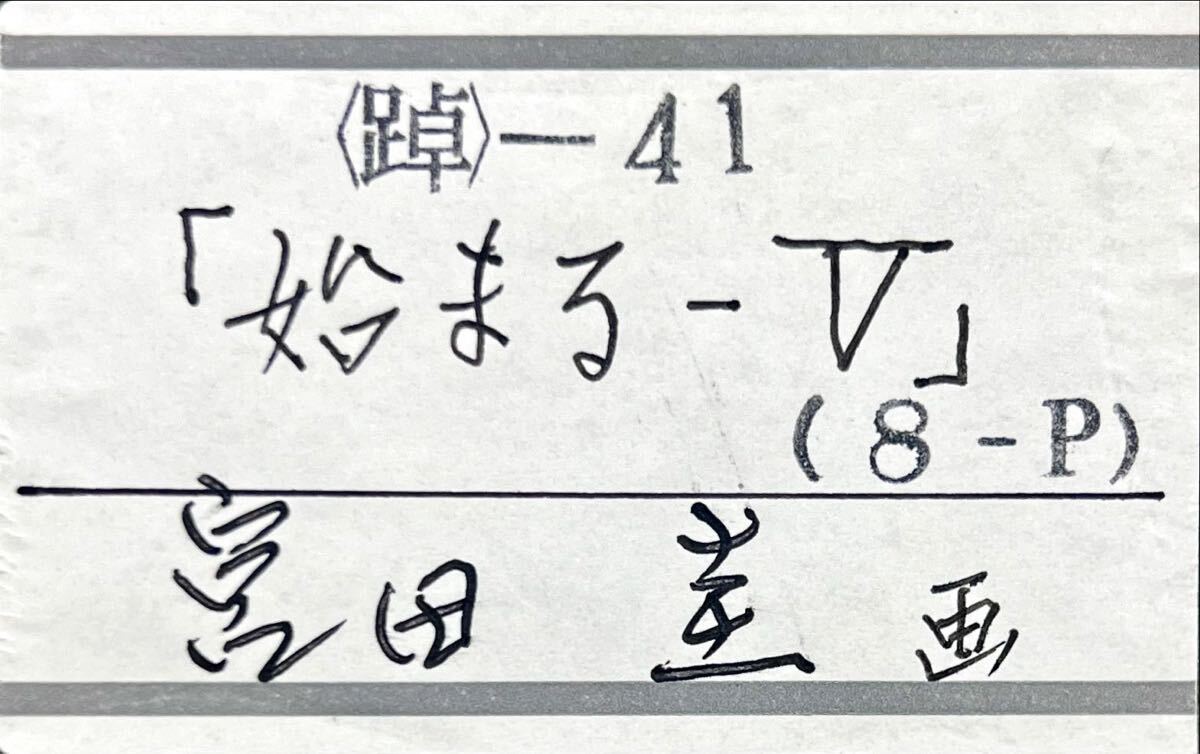 〈踔〉— 41
「始まる - V」
(8 - P)
宮田 圭 画